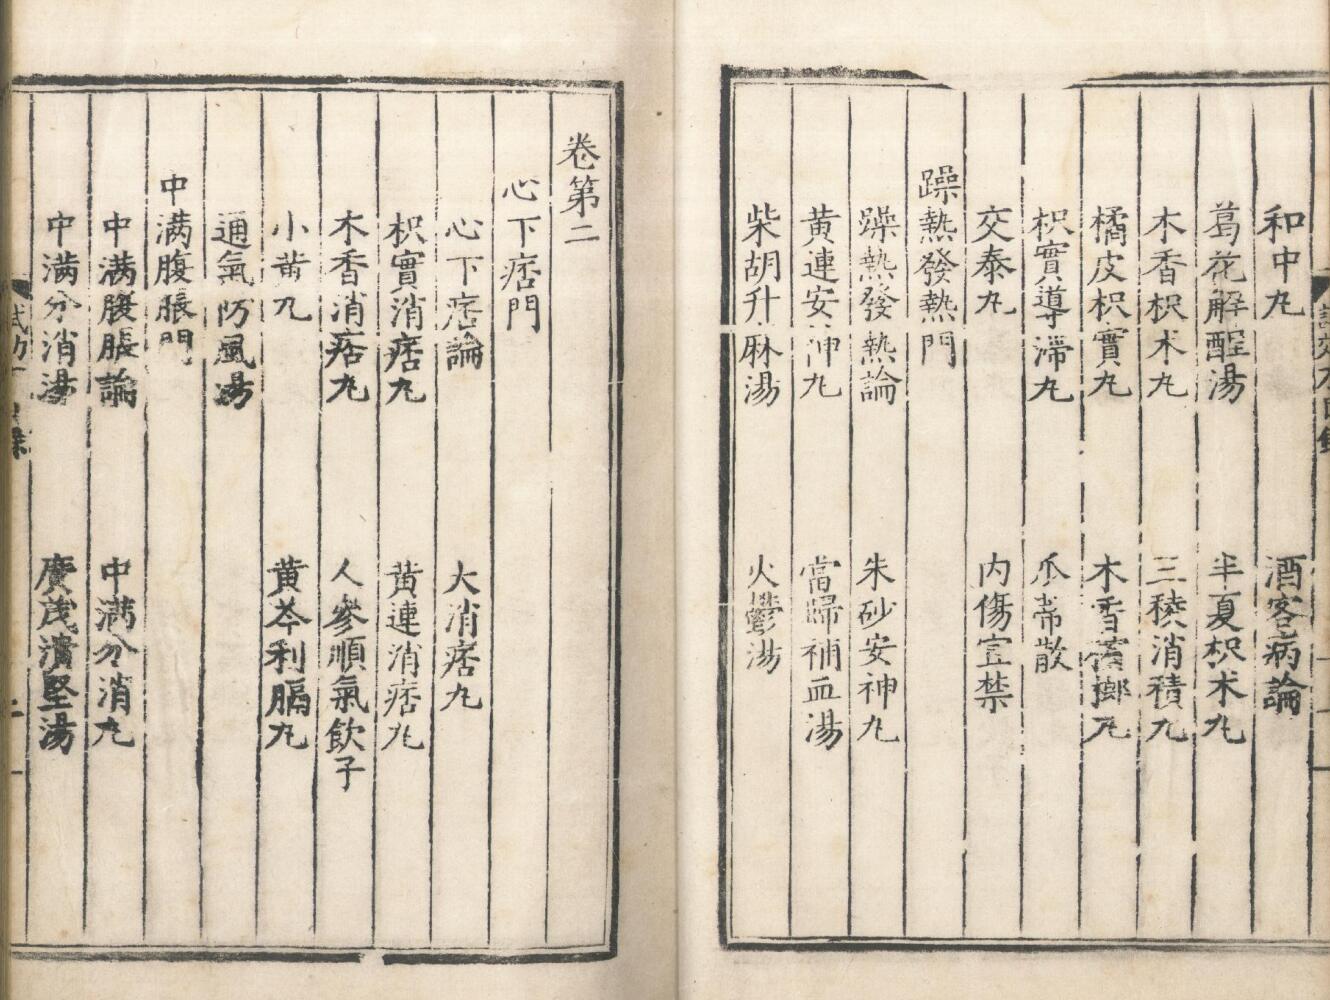 和中丸　酒客病論
葛花解酲湯　半夏枳术丸
木香枳术丸　三稜消積丸
橘皮枳實丸　木香檳榔丸
枳實導滯丸　瓜蒂散
交泰丸　內傷宜禁
躁熱發熱門
躁熱發熱論　朱砂安神丸
黃連安神丸　當歸補血湯
柴胡升麻湯　火鬱湯
卷第二
心下痞門
心下痞論　大消痞丸
枳實消痞丸　黃連消痞丸
木香消痞丸　人參順氣飲子
小黃丸　黃芩利膈丸
通氣防風湯
中滿腹脹門
中滿腹脹論　中滿分消丸
中滿分消湯　廣茂潰堅湯